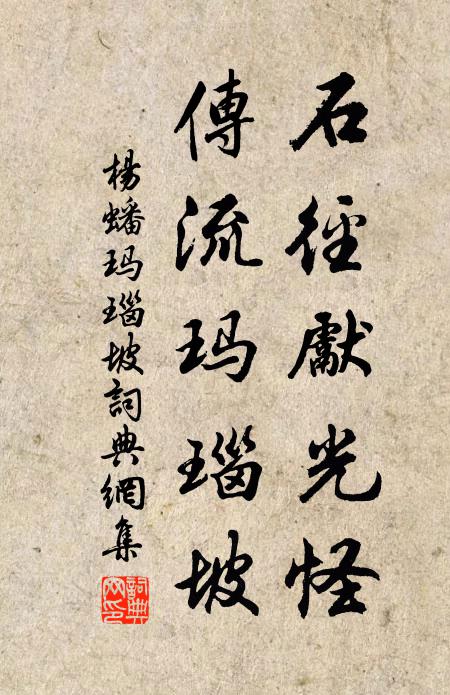 石徑獻光怪
傳流玛瑙坡
楊蟠玛瑙坡詞典網集
詞典網印